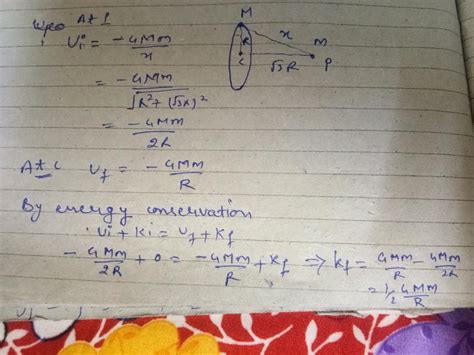 At P
Ui = -GMm/x
= -GMm/√R²+(√3R)²
= -GMm/2R
At C Uf = -GMm/R
By energy conservation
Ui + Ki = Uf + Kf
-GMm/2R + 0 = -GMm/R + Kf ⇒ Kf = GMm/R - GMm/2R
= 1/2 GMm/R
M
x
R
m
C
√3R
P